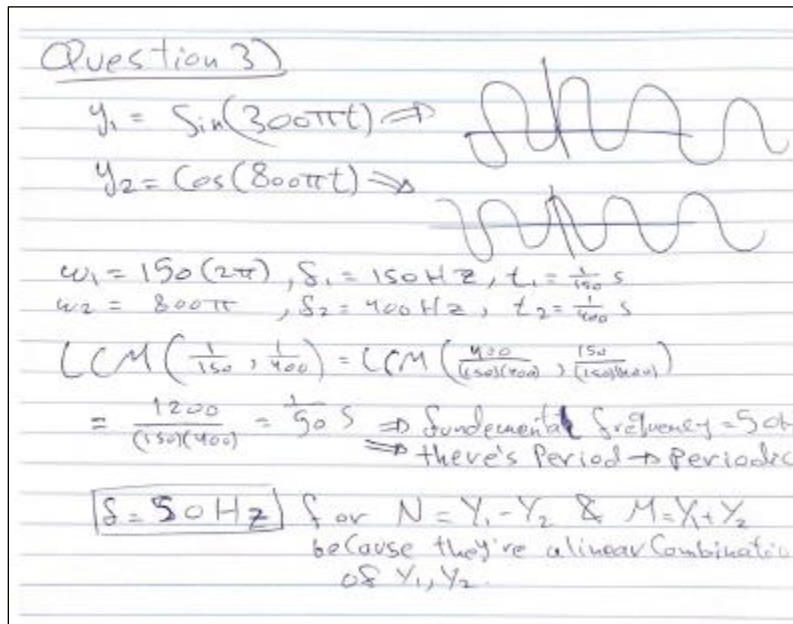 Question 3)
y₁ = Sin(300πt) ⇒
y₂ = Cos(800πt) ⇒
ω₁ = 150(2π), f₁ = 150Hz, t₁ = 1/150 s
ω₂ = 800π, f₂ = 400Hz, t₂ = 1/400 s
LCM(1/150, 1/400) = LCM(400/(150)(400), 150/(150)(400))
= 1200/(150)(400) = 1/50 s ⇒ fundemental frequency = 50H
⇒ there's Period → Periodic
f = 50Hz for N = Y₁ - Y₂ & M = Y₁ + Y₂
because they're a linear Combinatio
of Y₁, Y₂.